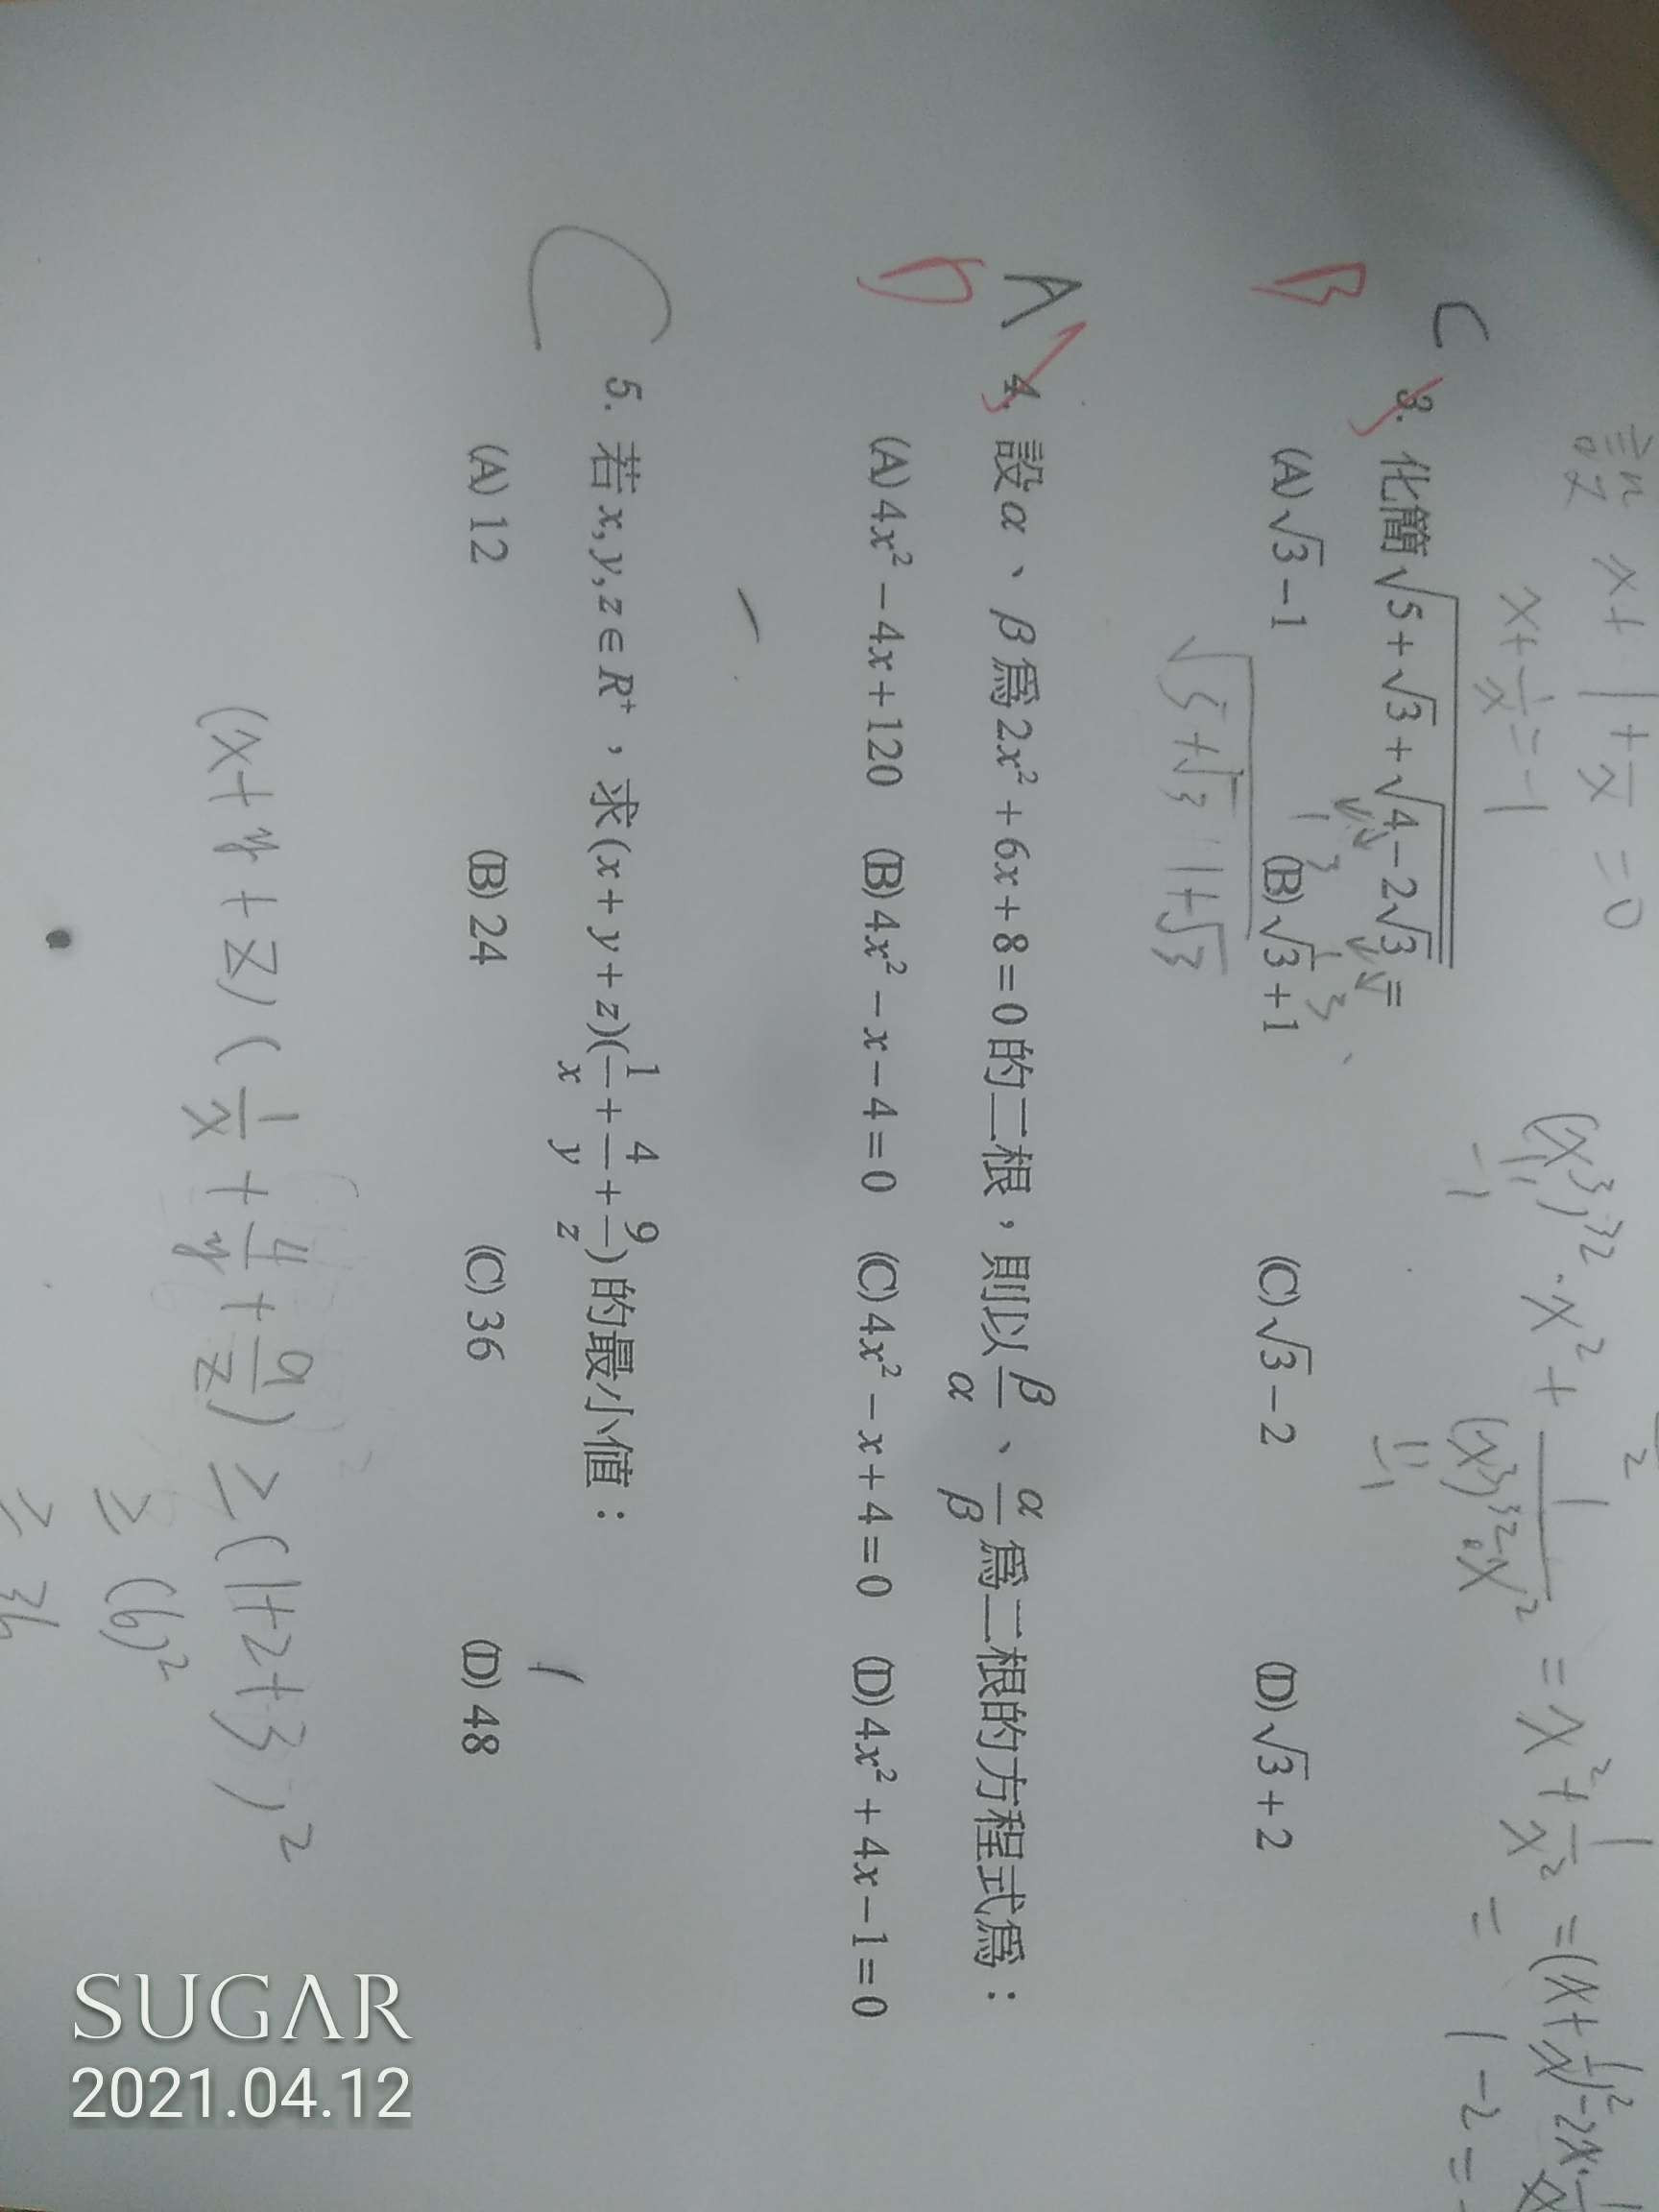 設 x + 1 + 1/x = 0
x + 1/x = -1
(x³)³² · x² + 1/((x³)³² · x²) = x² + 1/x² = (x + 1/x)² - 2x ·
= 1 - 2 =
C
B
3. 化簡√(5+√3+√(4-2√3)) =
(A) √3-1 (B) √3+1 (C) √3-2 (D) √3+2
√(5+√3
1+√3
A
D
4. 設α、β為2x²+6x+8=0的二根，則以β/α、α/β為二根的方程式為：
(A) 4x²-4x+120 (B) 4x²-x-4=0 (C) 4x²-x+4=0 (D) 4x²+4x-1=0
C
5. 若x,y,z∈R⁺，求(x+y+z)(1/x+4/y+9/z)的最小值：
(A) 12 (B) 24 (C) 36 (D) 48
(x+y+z)(1/x+4/y+9/z) ≥ (1+2+3)²
≥ (6)²
≥ 36
SUGAR
2021.04.12